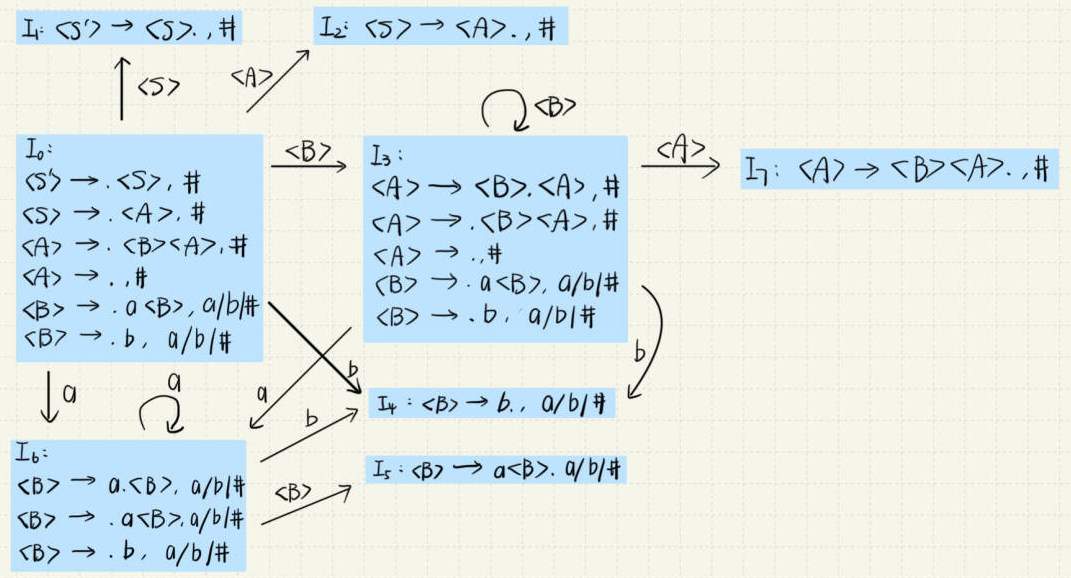 I₁: <S'> → <S>. , #
I₂: <S> → <A>. , #
<S>
<A>
<B>
I₀:
<S'> → .<S>, #
<S> → .<A>, #
<A> → . <B><A>, #
<A> → . , #
<B> → . a<B>, a/b/#
<B> → . b, a/b/#
<B>
I₃:
<A> → <B>.<A>, #
<A> → .<B><A>, #
<A> → . , #
<B> → . a<B>, a/b/#
<B> → . b, a/b/#
<A>
I₇: <A> → <B><A>. , #
a
a
b
a
b
b
I₄: <B> → b., a/b/#
I₆:
<B> → a.<B>, a/b/#
<B> → . a<B>, a/b/#
<B> → . b, a/b/#
<B>
I₅: <B> → a<B>. a/b/#